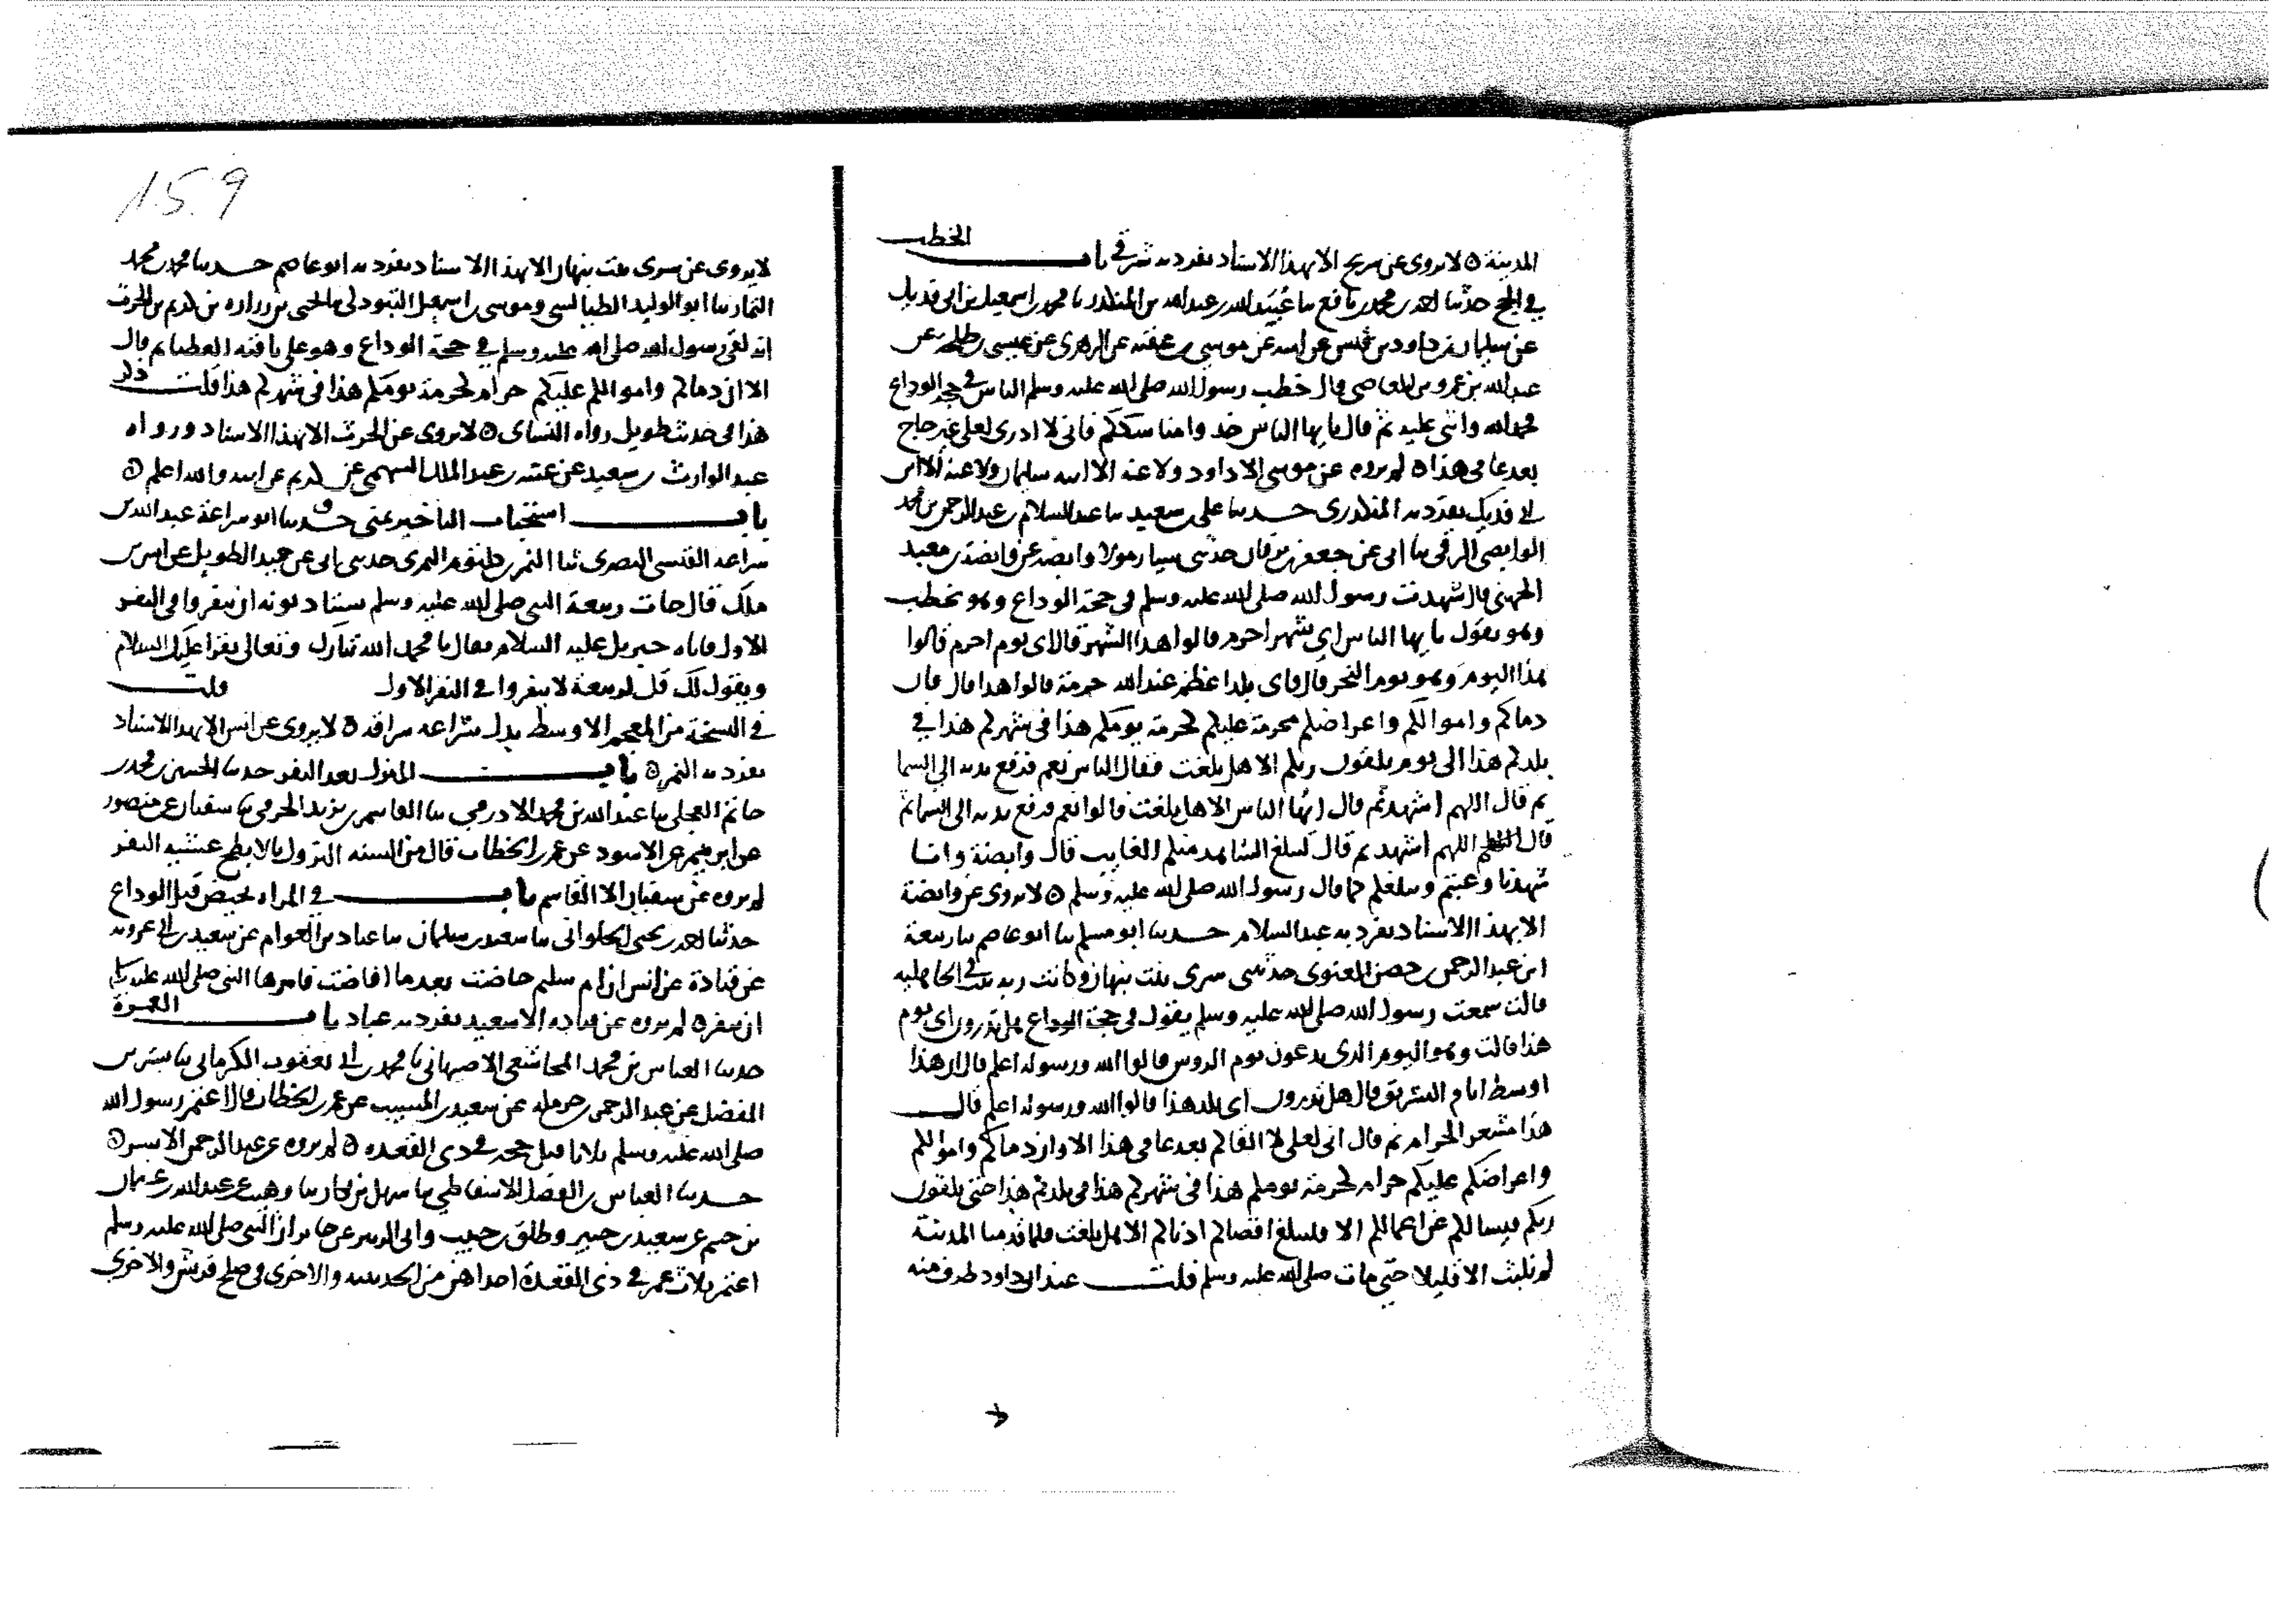 المدينة ه لا يروى عن سريج الا بهذا الاسناد تفرد به شرقي باب الخطب
في الحج حدثنا احمد بن محمد بن نافع ثنا عبيد الله بن عبد الله بن المنكدر نا محمد بن اسمعيل بن ابي فديك
عن سليمان بن داود بن قيس عن ابيه عن موسى بن عقبة عن الزهري عن عيسى بن طلحة عن
عبد الله بن عمرو بن العاصي قال خطب رسول الله صلى الله عليه وسلم الناس في حجة الوداع
فحمد الله واثنى عليه ثم قال يا ايها الناس خذوا مناسككم فاني لا ادري لعلي غير حاج
بعد عامي هذا ه لم يروه عن موسى الا داود ولا عنه الا ابنه سليمان ولا عنه الا ابن
ابي فديك تفرد به المنكدري حدثنا علي بن سعيد ثنا عبد السلام بن عبد الرحمن بن محمد
الوابصي الرقي ثنا ابي عن جعفر بن برقان حدثني سيار مولا وابصة عن وابصة بن معبد
الجهني قال شهدت رسول الله صلى الله عليه وسلم في حجة الوداع وهو يخطب
وهو يقول يا ايها الناس اي شهر احرم قالوا هذا الشهر قال اي يوم احرم قالوا
هذا اليوم وهو يوم النحر قال فاي بلد اعظم عند الله حرمة قالوا هذا قال فان
دماكم واموالكم واعراضكم محرمة عليكم كحرمة يومكم هذا في شهركم هذا في
بلدكم هذا الى يوم تلقون ربكم الا هل بلغت فقال الناس نعم فرفع يديه الى السما
ثم قال اللهم اشهد ثم قال ايها الناس الا هل بلغت قالوا نعم فرفع يديه الى السما ثم
قال اللهم اشهد ثم قال ليبلغ الشاهد منكم الغايب قال وابصة وانا
شهدنا وغبتم ونبلغكم كما قال رسول الله صلى الله عليه وسلم ه لا يروى عن وابصة
الا بهذا الاسناد تفرد به عبد السلام حدثنا ابو مسلم ثنا ابو عاصم ثنا ربيعة
ابن عبد الرحمن بن حصن الغنوي حدثتني سرى بنت نبهان وكانت ربة بيت في الجاهلية
قالت سمعت رسول الله صلى الله عليه وسلم يقول في حجة الوداع هل تدرون اي يوم
هذا قالت وهو اليوم الذي يدعون يوم الروس قالوا الله ورسوله اعلم قال ان هذا
اوسط ايام التشريق قال هل تدرون اي بلد هذا قالوا الله ورسوله اعلم قال
هذا مشعر الحرام ثم قال اني لعلي لا القاكم بعد عامي هذا الا وان دماكم واموالكم
واعراضكم عليكم حرام كحرمة يومكم هذا في شهركم هذا في بلدكم هذا حتى تلقون
ربكم فيسالكم عن اعمالكم الا فليبلغ اقصاكم ادناكم الا هل بلغت فلما قدمنا المدينة
لم نلبث الا قليلا حتى مات صلى الله عليه وسلم قلت عند ابي داود طرف منه
159
لا يروى عن سرى بنت نبهان الا بهذا الاسناد تفرد به ابو عاصم حدثنا محمد بن محمد
التمار ثنا ابو الوليد الطيالسي وموسى بن اسمعيل التبوذكي ثنا يحيى بن زرارة بن كريم بن الحرث
انه لقي رسول الله صلى الله عليه وسلم في حجة الوداع وهو على ناقته العضبا ثم قال
الا ان دماكم واموالكم عليكم حرام كحرمة يومكم هذا في شهركم هذا قلت ذكر
هذا في حديث طويل رواه النساي ه لا يروى عن الحرث الا بهذا الاسناد ورواه
عبد الوارث بن سعيد عن عتبة بن عبد الملك السهمي عن كريم عن ابيه والله اعلم ه
باب استحباب التاخير بمنى حدثنا ابو سراعة عبد الله بن
سراعة القيسي البصري ثنا النمر بن كلثوم النمري حدثني ابي عن حميد الطويل عن انس بن
ملك قال جات ربيعة النبي صلى الله عليه وسلم يستاذنونه ان ينفروا في النفر
الاول فاتاه جبريل عليه السلام فقال يا محمد الله تبارك وتعالى يقرا عليك السلام
ويقول لك قل لربيعة لا ينفروا في النفر الاول قلت
في النسخة من المعجم الاوسط بدل سراعة سراقة ه لا يروى عن انس الا بهذا الاسناد
تفرد به النمر ه باب النزول بعد النفر حدثنا الحسين بن محمد بن
حاتم العجلي ثنا عبد الله بن محمد الاذرمي ثنا القاسم بن يزيد الجرمي ثنا سفيان عن منصور
عن ابرهيم عن الاسود عن عمر بن الخطاب قال من السنة النزول بالابطح عشية النفر
لم يروه عن سفيان الا القاسم باب في المراة تحيض قبل الوداع
حدثنا احمد بن يحيى الحلواني ثنا سعيد بن سليمان ثنا عباد بن العوام عن سعيد بن ابي عروبة
عن قتادة عن انس ان ام سليم حاضت بعدما افاضت فامرها النبي صلى الله عليه وسلم
ان تنفر ه لم يروه عن قتادة الا سعيد تفرد به عباد باب العمرة
حدثنا العباس بن محمد المجاشعي الاصبهاني نا محمد بن ابي يعقوب الكرماني ثنا بشر بن
المفضل عن عبد الرحمن بن حرملة عن سعيد بن المسيب عن عمر بن الخطاب قال اعتمر رسول الله
صلى الله عليه وسلم ثلاثا قبل حجه في ذي القعدة ه لم يروه عن عبد الرحمن الا بشر ه
حدثنا العباس بن الفضل الاسفاطي ثنا سهل بن بكار ثنا وهيب عن عبد الله بن عثمان
بن خثيم عن سعيد بن جبير وطلق بن حبيب وابي الزبير عن جابر ان النبي صلى الله عليه وسلم
اعتمر ثلاث عمر في ذي القعدة احداهن من الحديبية والاخرى في صلح قريش والاخرى